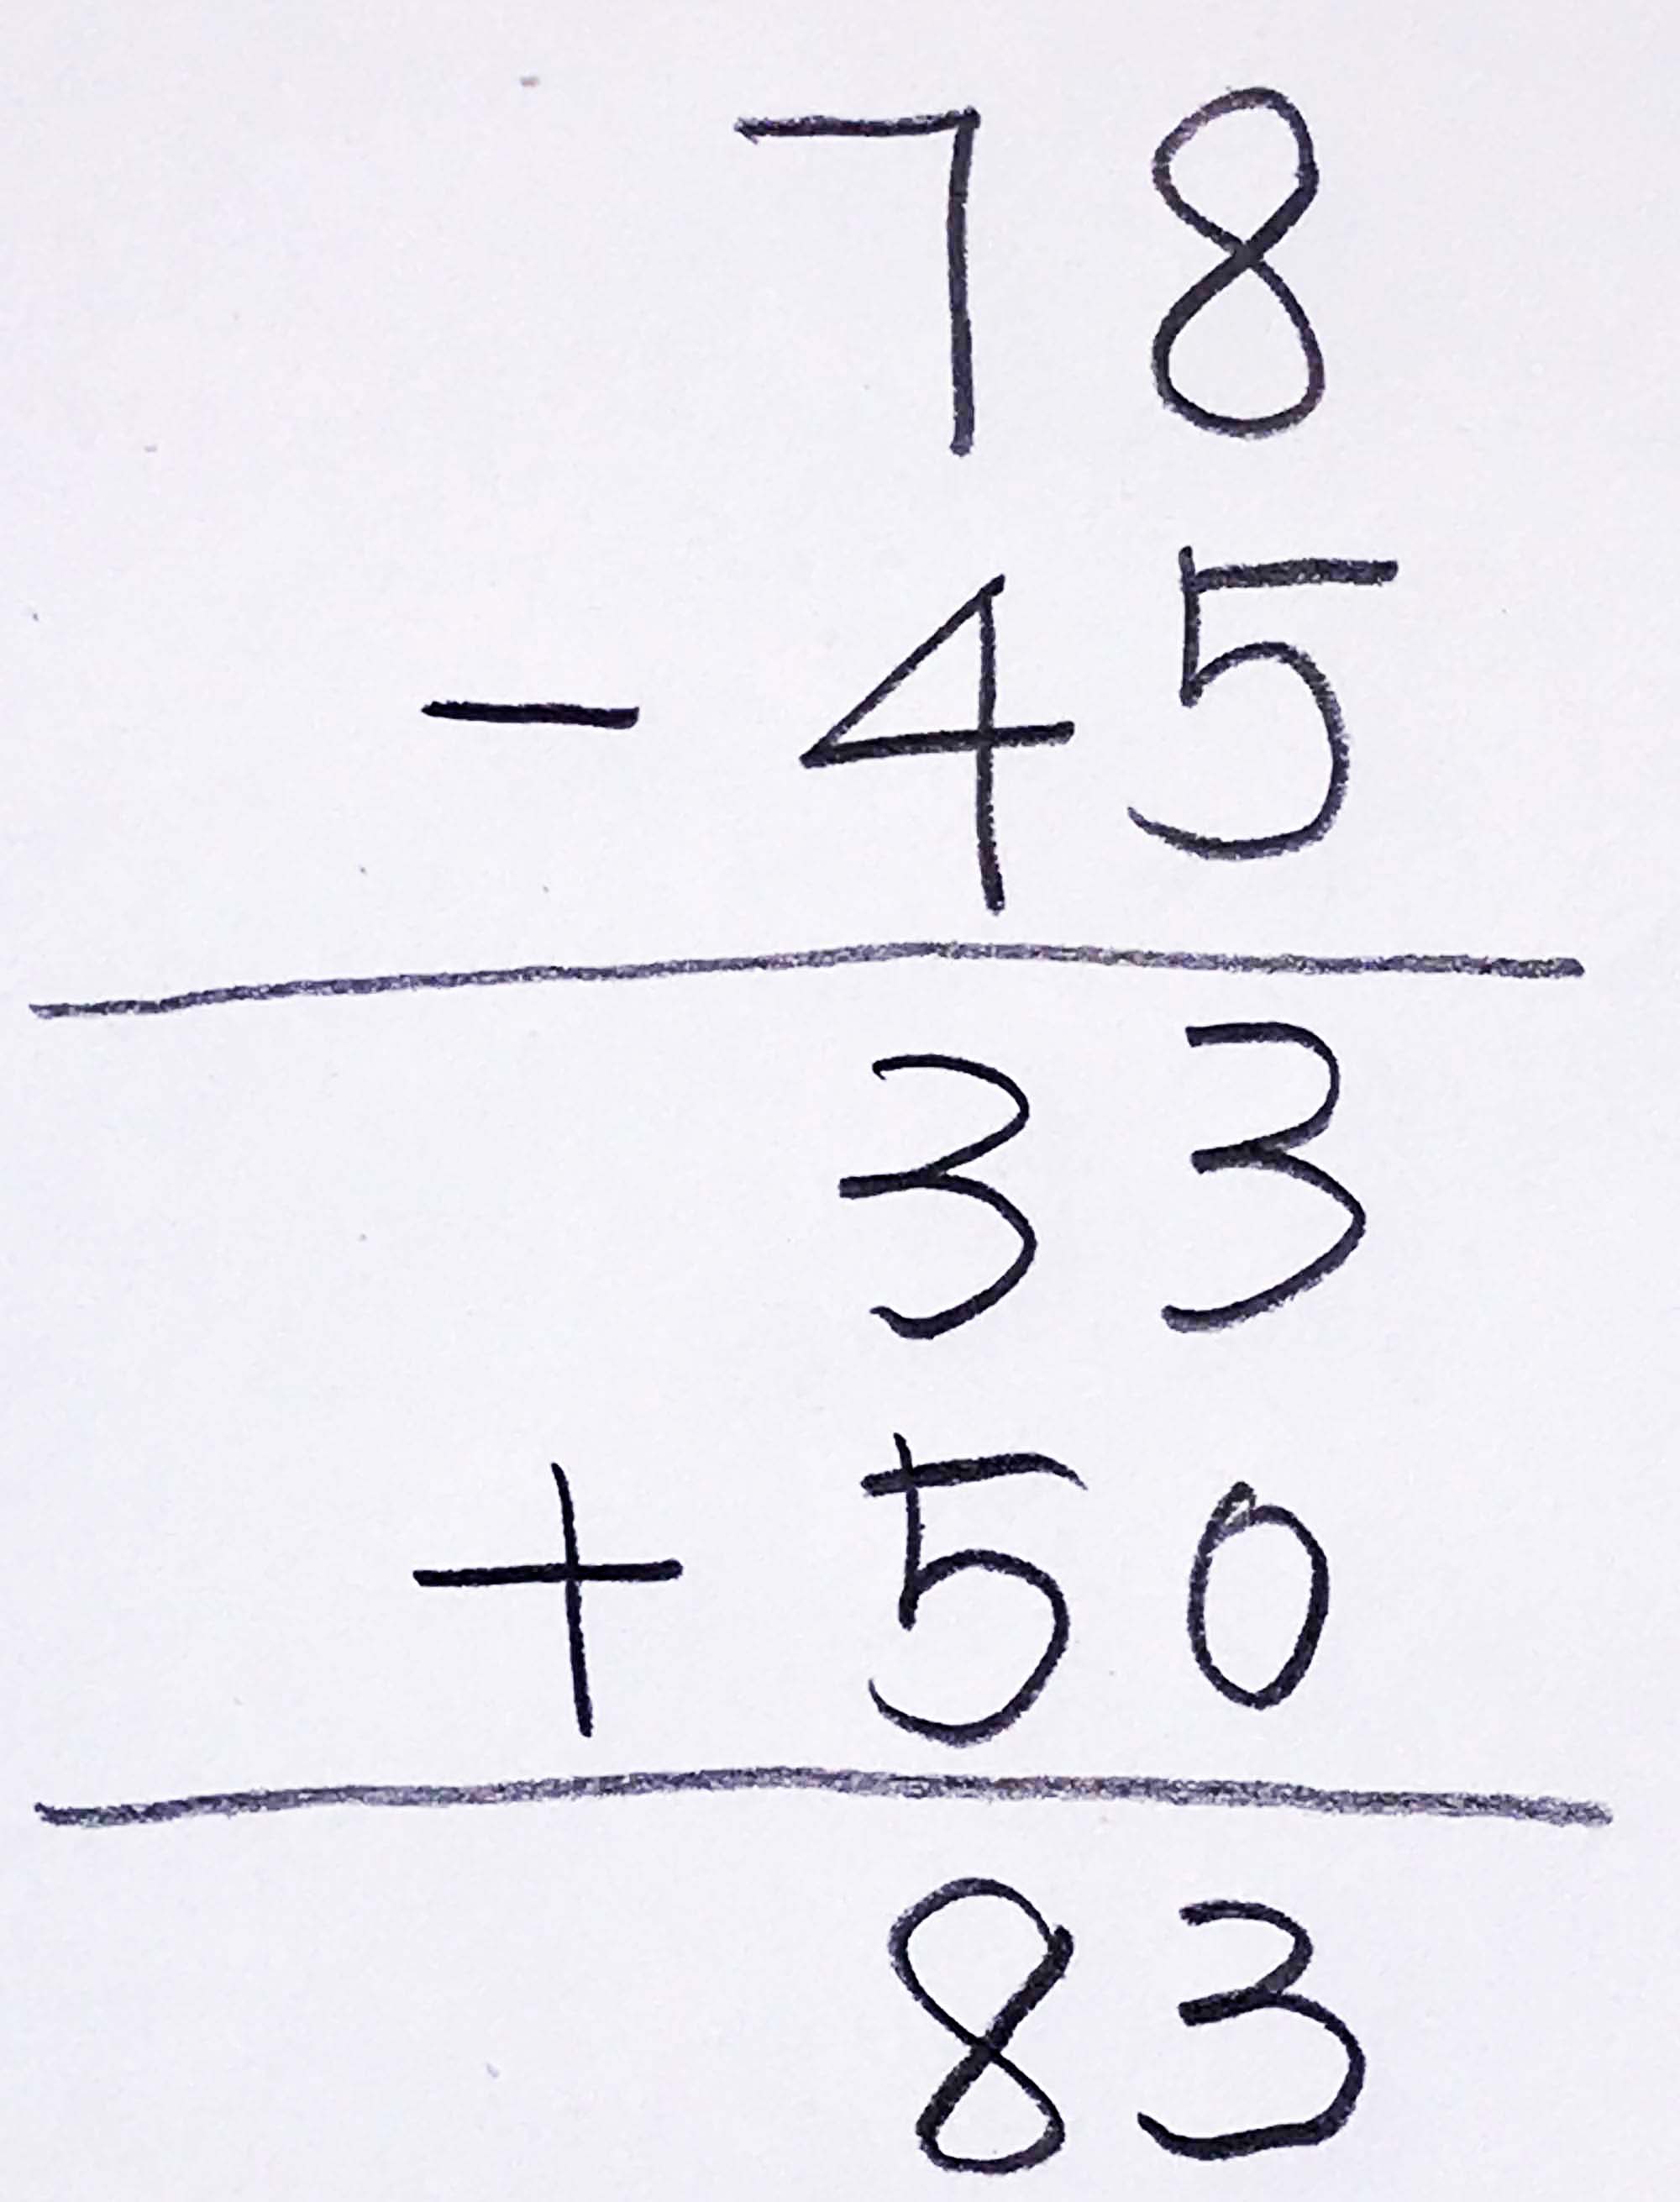 78
- 45
33
+ 50
83